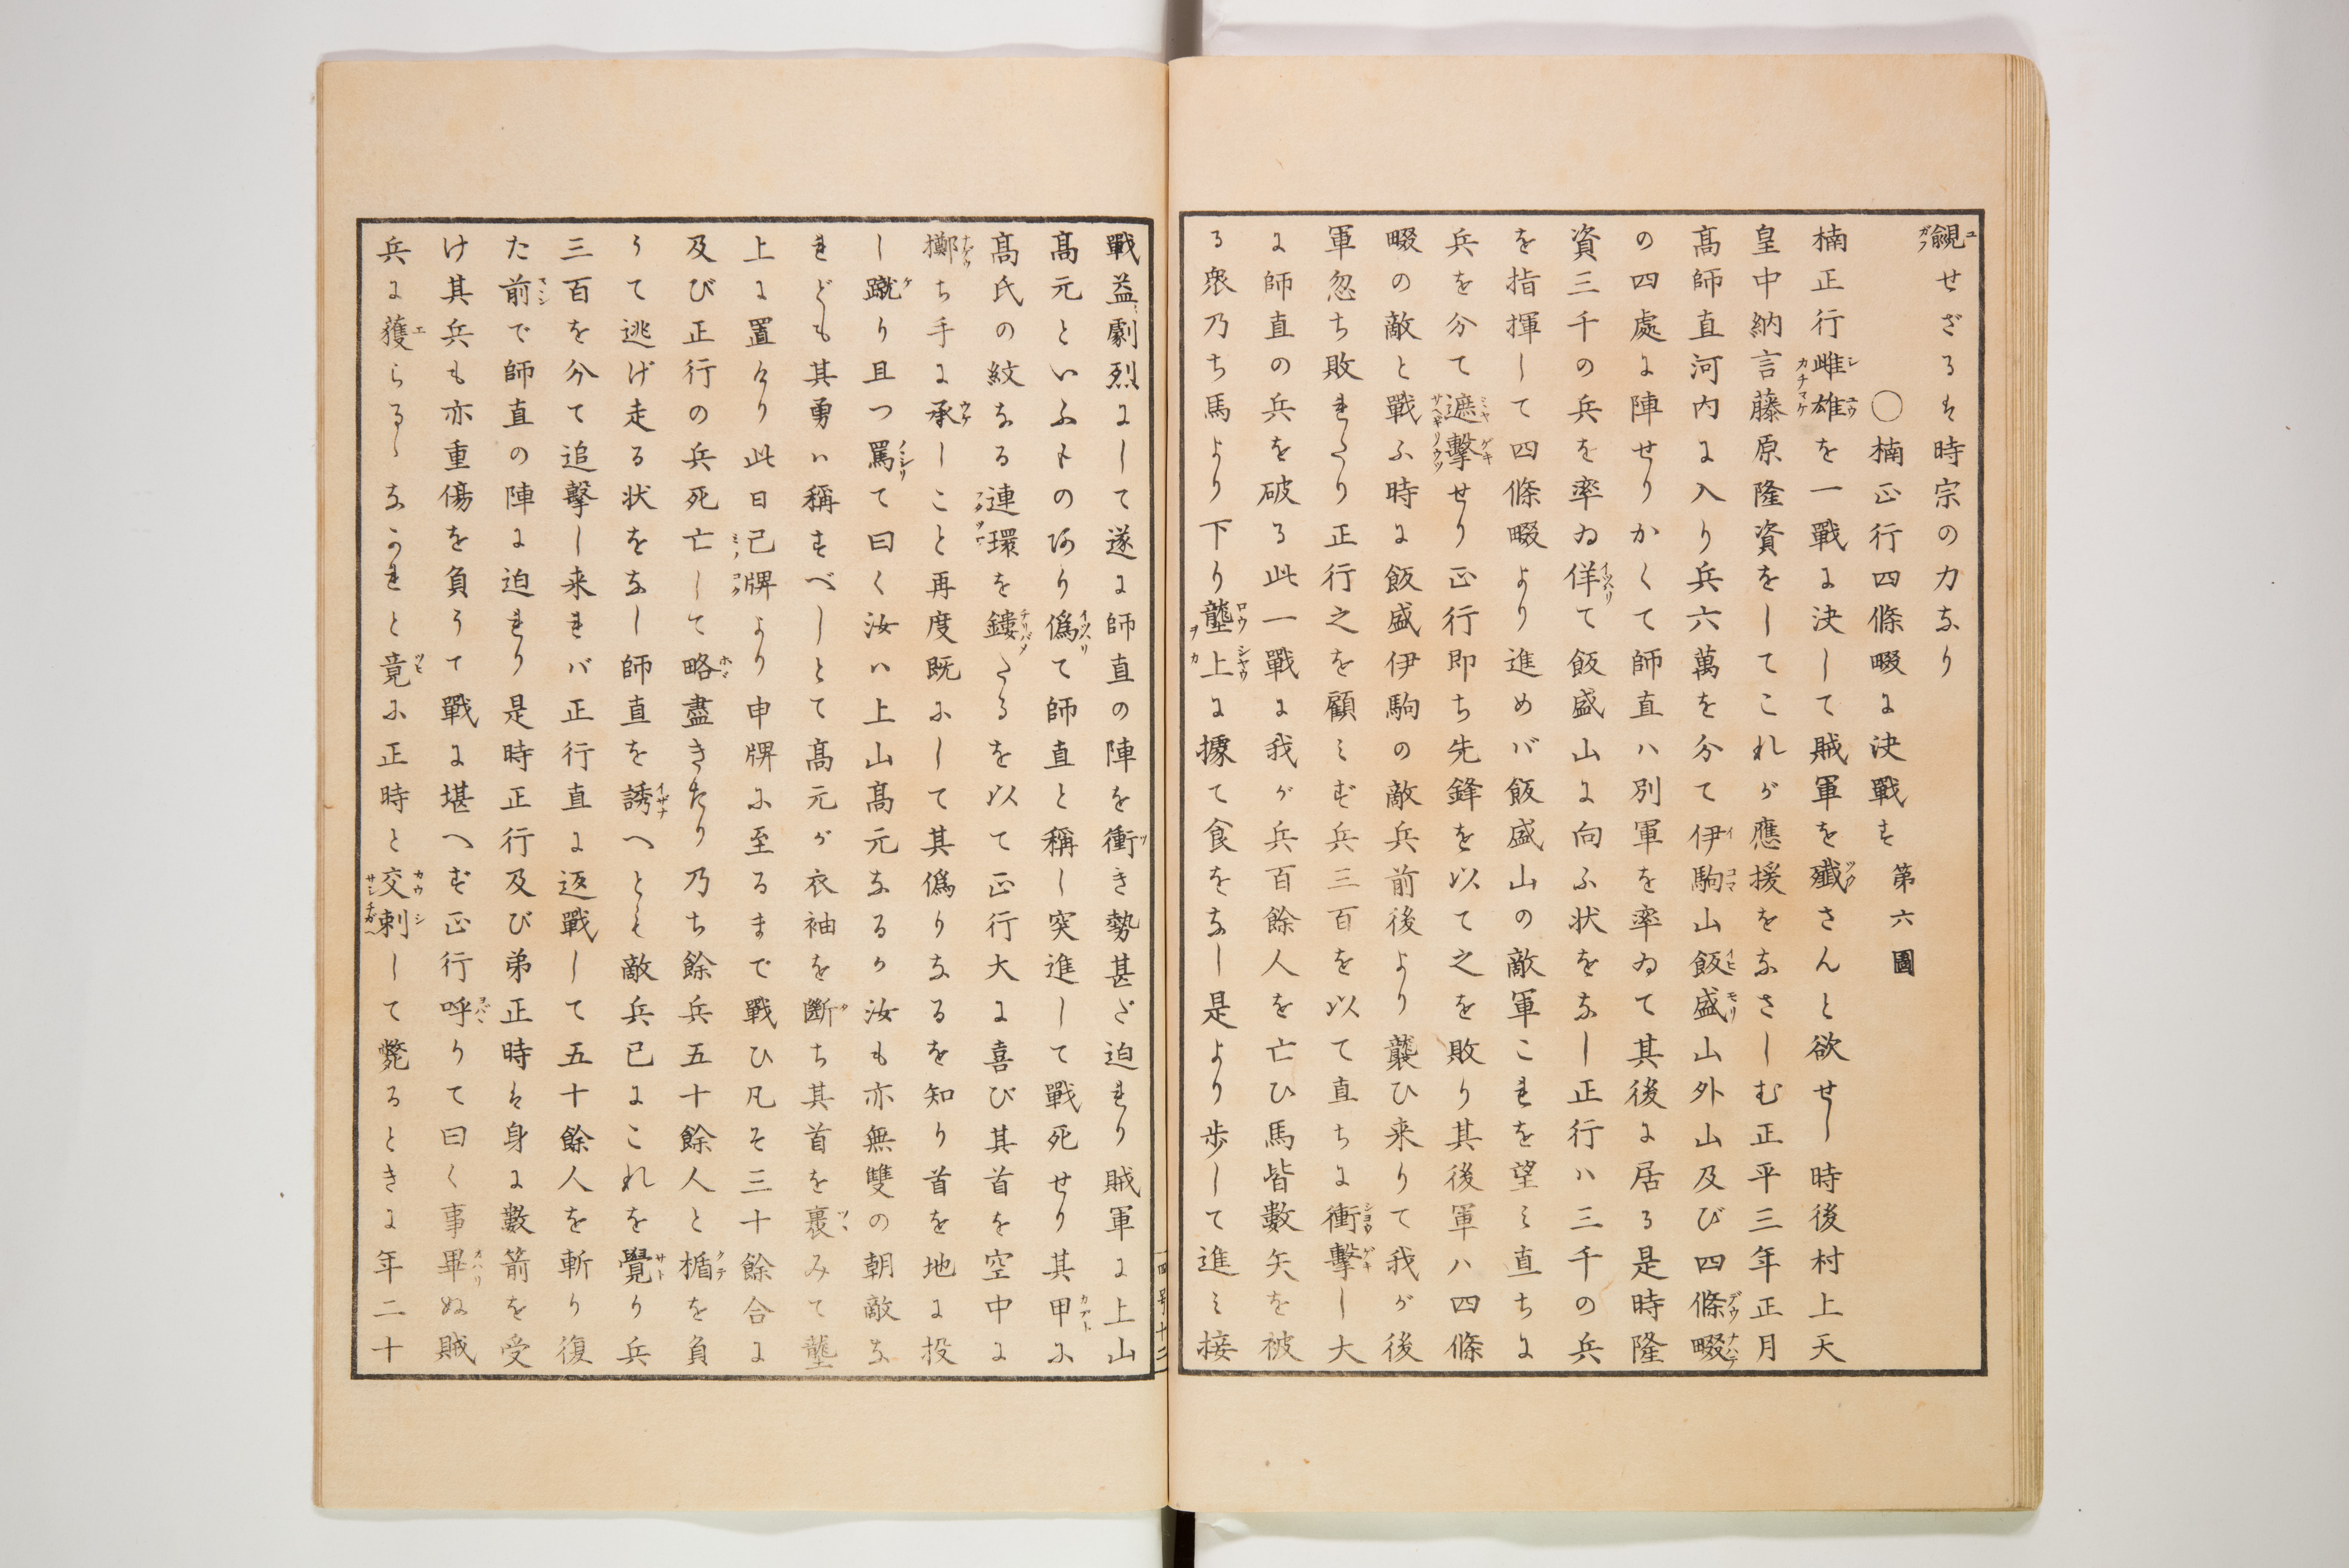 覦せざるは時宗の力なり
〇楠正行四條畷に決戰す 第六圖
楠正行雌雄を一戰に決して賊軍を殲さんと欲せし時後村上天
皇中納言藤原隆資をしてこれが應援をなさしむ正平三年正月
髙師直河内に入り兵六萬を分て伊駒山飯盛山外山及び四條畷
の四處に陣せりかくて師直ハ別軍を率ゐて其後に居る是時隆
資三千の兵を率ゐ佯て飯盛山に向ふ状をなし正行ハ三千の兵
を指揮して四條畷より進めバ飯盛山の敵軍これを望ミ直ちに
兵を分て遮擊せり正行即ち先鋒を以て之を敗り其後軍ハ四條
畷の敵と戰ふ時に飯盛伊駒の敵兵前後より襲ひ来りて我が後
軍忽ち敗れたり正行之を顧ミず兵三百を以て直ちに衝擊し大
に師直の兵を破る此一戰に我が兵百餘人を亡ひ馬皆數矢を被
る衆乃ち馬より下り壟上に據て食をなし是より歩して進ミ接
戰益〻劇烈にして遂に師直の陣を衝き勢甚ざ迫れり賊軍に上山
髙元といふものあり僞て師直と稱し突進して戰死せり其甲に
髙氏の紋なる連環を鏤たるを以て正行大に喜び其首を空中に
擲ち手に承しこと再度既にして其僞りなるを知り首を地に投
し蹴り且つ罵て曰く汝ハ上山髙元なるか汝も亦無雙の朝敵な
れども其勇ハ稱すべしとて髙元が衣袖を斷ち其首を裹みて壟
上に置けり此日己牌より申牌に至るまで戰ひ凡そ三十餘合に
及び正行の兵死亡して略盡きたり乃ち餘兵五十餘人と楯を負
うて逃げ走る状をなし師直を誘へとも敵兵已にこれを覺り兵
三百を分て追擊し来れバ正行直に返戰して五十餘人を斬り復
た前で師直の陣に迫れり是時正行及び弟正時は身に數箭を受
け其兵も亦重傷を負うて戰に堪へず正行呼りて曰く事畢ぬ賊
兵に獲らるゝなかれと竟に正時と交刺して斃るときに年二十